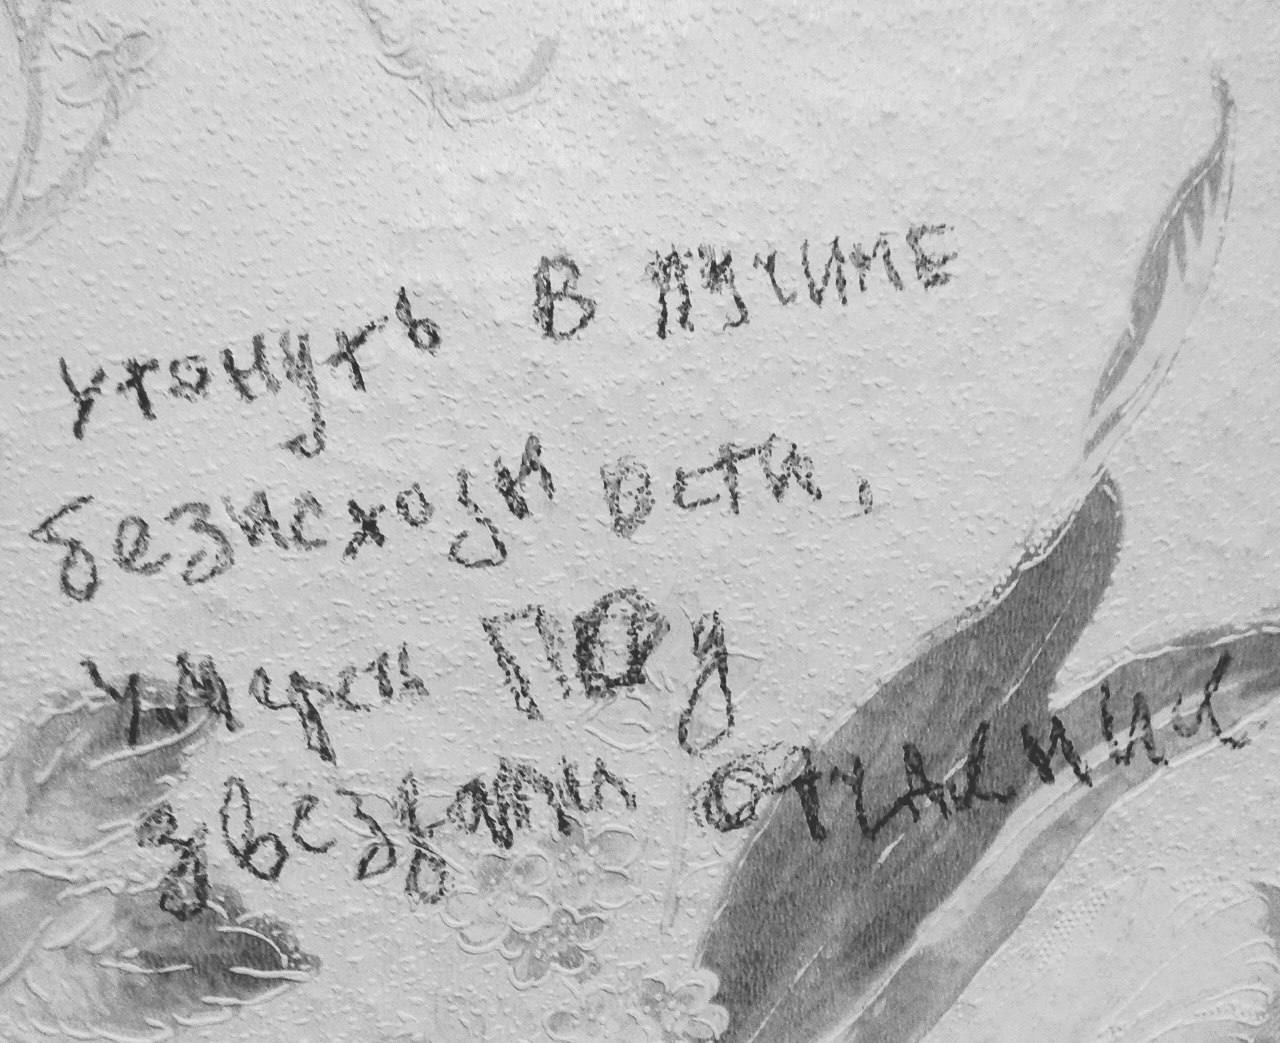 утонуть в пучине
безисходн ости,
умереть под
звездами отчаянии